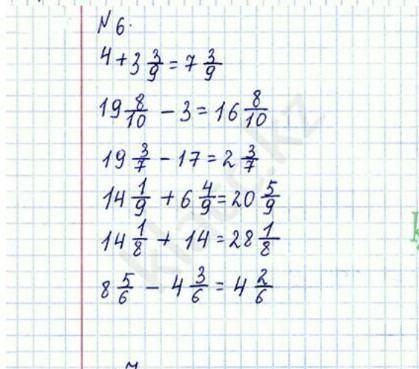 N 6.
4 + 3 3/9 = 7 3/9
19 8/10 - 3 = 16 8/10
19 3/7 - 17 = 2 3/7
14 1/9 + 6 4/9 = 20 5/9
14 1/8 + 14 = 28 1/8
8 5/6 - 4 3/6 = 4 2/6